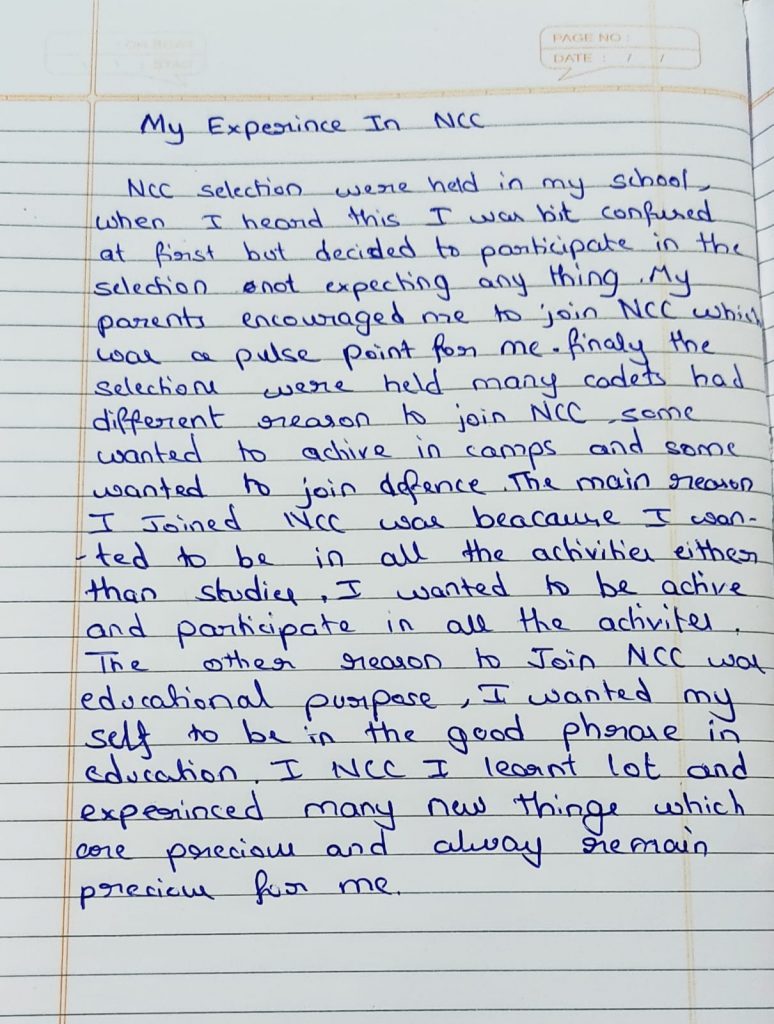 PAGE NO :
DATE : / /
My Experince In NCC
NCC selection were held in my school,
when I heard this I was bit confused
at first but decided to participate in the
selection not expecting any thing. My
parents encouraged me to join NCC which
was a pulse point for me. finaly the
selections were held many cadets had
different reason to join NCC, some
wanted to achive in camps and some
wanted to join defence. The main reason
I Joined NCC was beacause I wan-
-ted to be in all the activities either
than studies, I wanted to be active
and participate in all the activites.
The other reason to Join NCC was
educational purpose, I wanted my
self to be in the good phrase in
education. I NCC I learnt lot and
experinced many new things which
are precious and alway remain
precious for me.